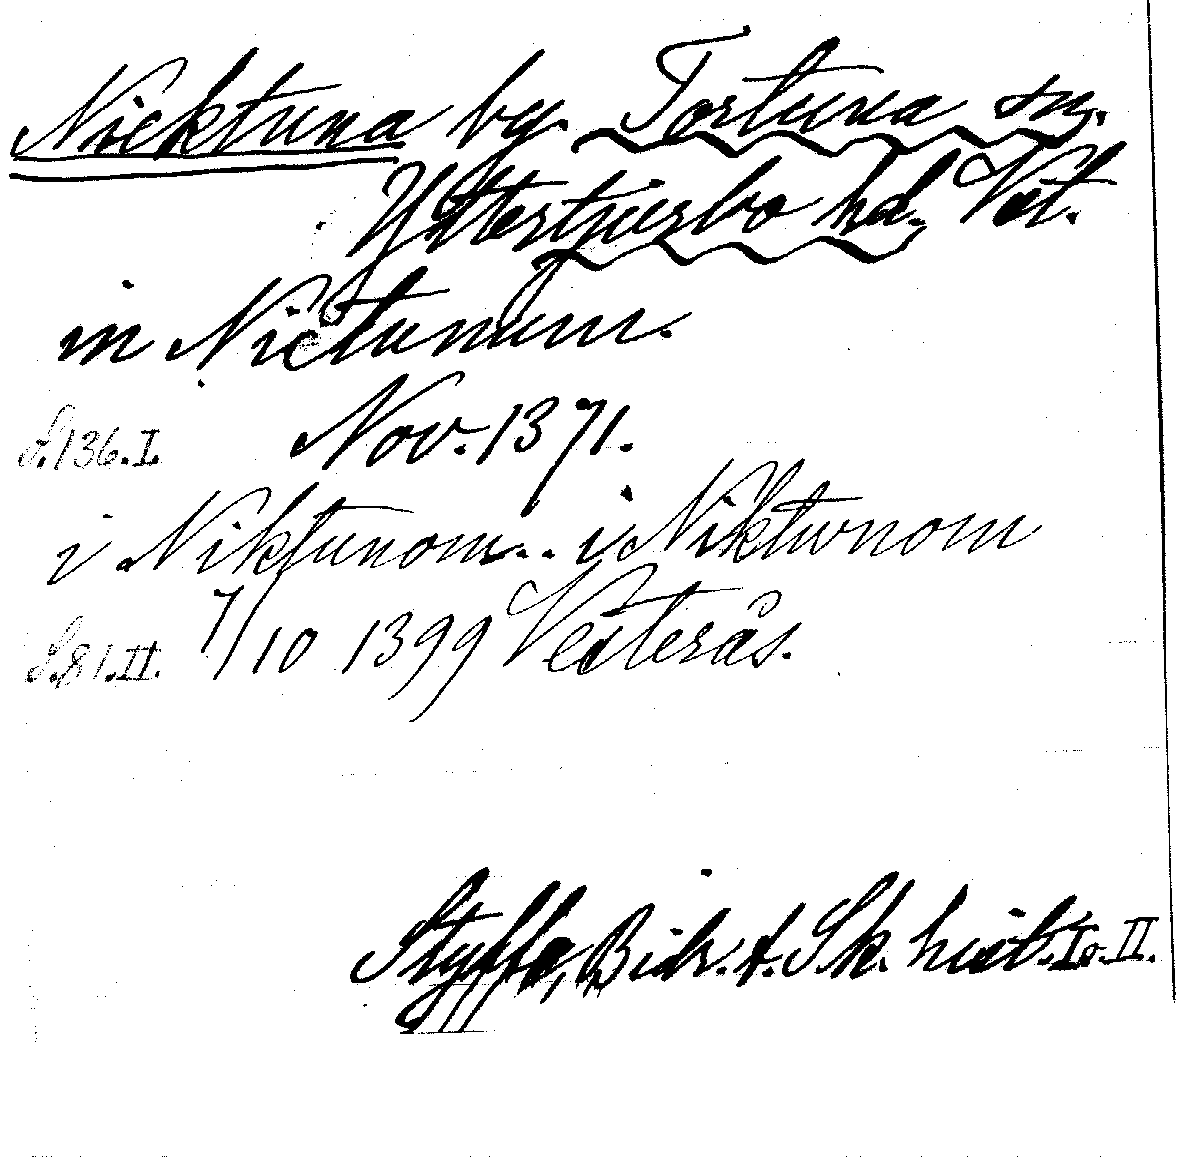 Nicktuna by. Tortuna sn.
Yttertjurbo hd. Vst.
in Nictunum.
S.136.I. Nov. 1371.
i Niktunom... i Niktwnom
S.81.II. 7/10 1399 Vesterås.
Styffe, Bidr. t. Sk. hist. I o. II.